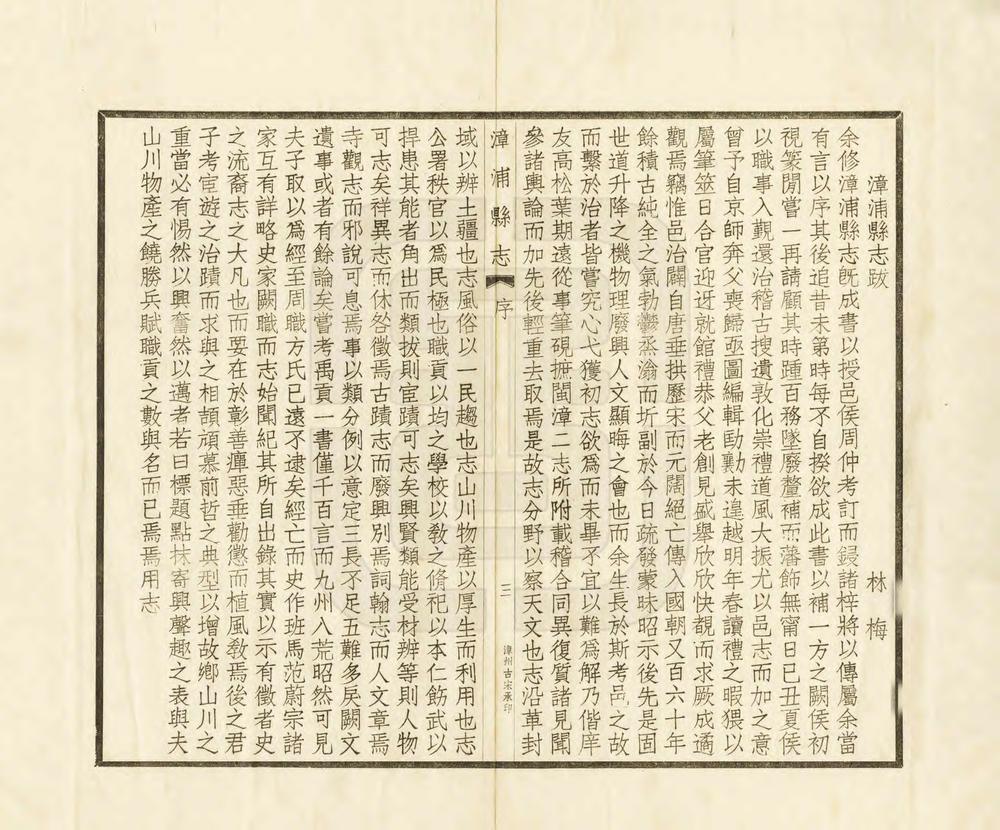 漳浦縣志跋
林梅
余修漳浦縣志旣成書以授邑侯周仲考訂而鋟諸梓將以傳屬余當
有言以序其後追昔未第時每不自揆欲成此書以補一方之闕侯初
視篆閒嘗一再請顧其時踵百務墜廢釐補而藩飾無甯日已丑夏侯
以職事入覲還治稽古搜遺敦化崇禮道風大振尤以邑志而加之意
曾予自京師奔父喪歸亟圖編輯劻勷未遑越明年春讀禮之暇猥以
屬筆筮日合官迎迓就館禮恭父老創見盛舉欣欣快覩而求厥成遹
觀焉竊惟邑治闢自唐垂拱歷宋而元闊絕亡傳入國朝又百六十年
餘積古純全之氣勃鬱烝滃而圻副於今日疏發蒙昧昭示後先是固
世道升降之機物理廢興人文顯晦之會也而余生長於斯考邑之故
而繫於治者皆嘗究心弋獲初志欲爲而未畢不宜以難爲解乃偕庠
友高松葉期遠從事筆硯摭閩漳二志所附載稽合同異復質諸見聞
參諸輿論而加先後輕重去取焉是故志分野以察天文也志沿革封
漳浦縣志
序
三
漳州古宋承印
域以辨土疆也志風俗以一民趨也志山川物產以厚生而利用也志
公署秩官以爲民極也職貢以均之學校以敎之脩祀以本仁飭武以
捍患其能者角出而類拔則宦蹟可志矣興賢類能受材辨等則人物
可志矣祥異志而休咎徵焉古蹟志而廢興別焉詞翰志而人文章焉
寺觀志而邪說可息焉事以類分例以意定三長不足五難多戾闕文
遺事或者有餘論矣嘗考禹貢一書僅千百言而九州入荒昭然可見
夫子取以爲經至周職方氏已遠不逮矣經亡而史作班馬范蔚宗諸
家互有詳略史家闕職而志始聞紀其所自出錄其實以示有徵者史
之流裔志之大凡也而要在於彰善癉惡垂勸懲而植風敎焉後之君
子考宦遊之治蹟而求與之相頡頏慕前哲之典型以增故鄉山川之
重當必有惕然以興奮然以邁者若曰標題點抹寄興聲趣之表與夫
山川物產之饒勝兵賦職貢之數與名而已焉焉用志